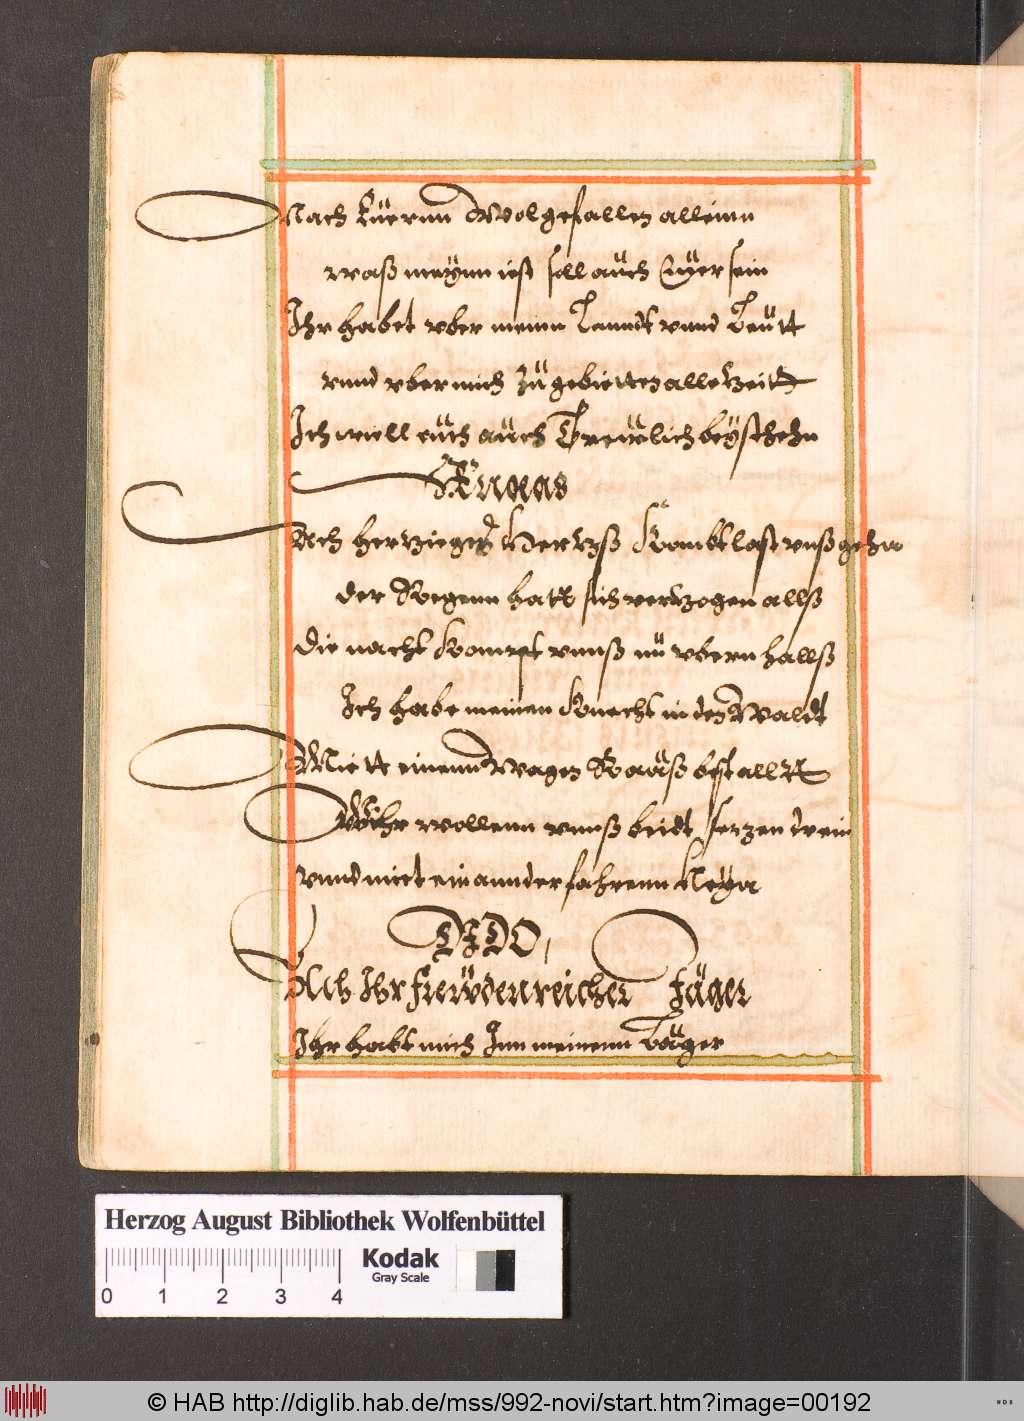 Nach Eüernn Wolgefallen alleinn
waß meynn ist soll aüch Eüyer sein
Ihr habet vber meinn Lanndt vnnd Leütt
vnnd vber mich zü gebietten alle Zeitt
Ich will eüch aüch Treülich beÿstehen
Æneas
Ach hertzieges Hertzß Kombt last vnß gehn
der Regenn hatt sich vertzogen allß
die nacht kompt vnnß nü vbern hallß
Ich habe meinen Knecht in den Waldt
Mitt einenn Wagen bestallt
Wihr wollenn vnnß beidt setzen drein
vnnd mitt einannder fahrenn
DIDO,
Ach Ihr freüdenreicher Jäger
Ihr habt mich Inn meinenn Läger
Herzog August Bibliothek Wolfenbüttel
Kodak
Gray Scale
0 1 2 3 4
© HAB http://diglib.hab.de/mss/992-novi/start.htm?image=00192